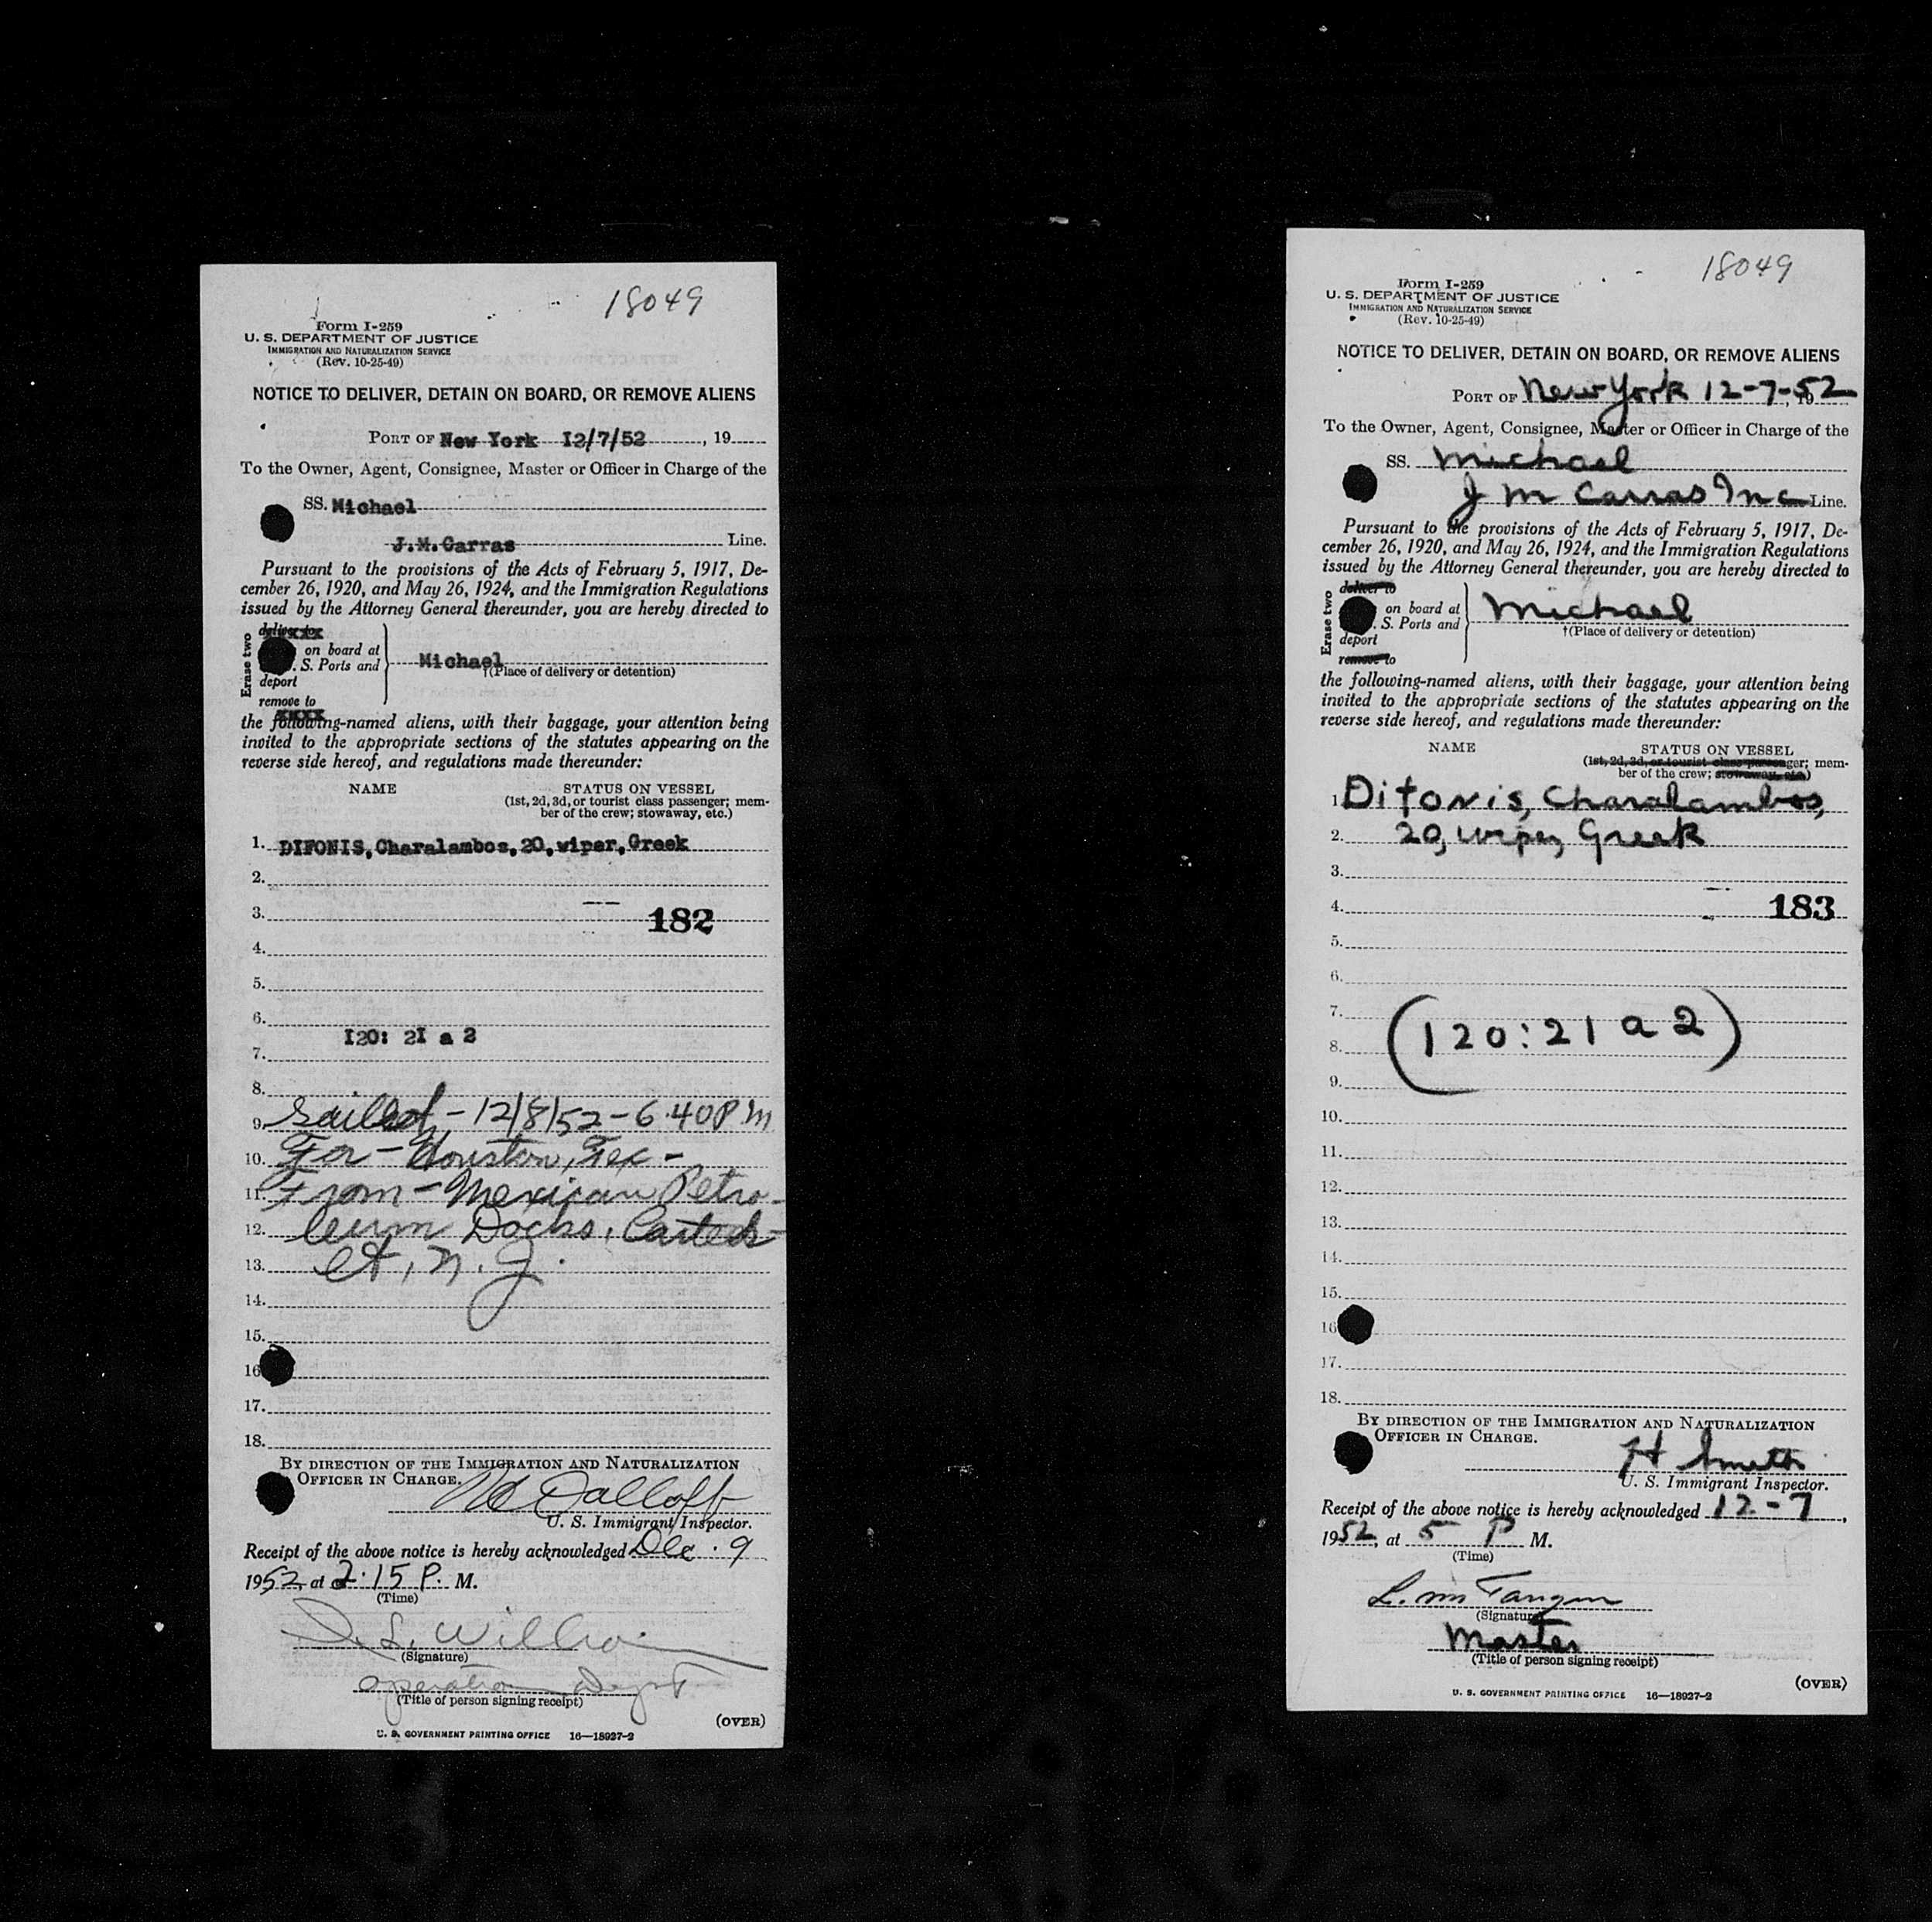 18049
Form I-259
U. S. DEPARTMENT OF JUSTICE
IMMIGRATION AND NATURALIZATION SERVICE
(Rev. 10-25-49)
NOTICE TO DELIVER, DETAIN ON BOARD, OR REMOVE ALIENS
PORT OF New York 12/7/52, 19
To the Owner, Agent, Consignee, Master or Officer in Charge of the
SS. Michael
J.M.Carras Line.
Pursuant to the provisions of the Acts of February 5, 1917, De-
cember 26, 1920, and May 26, 1924, and the Immigration Regulations
issued by the Attorney General thereunder, you are hereby directed to
Erase two
deliver to
on board at
. S. Ports and
deport
remove to
Michael
†(Place of delivery or detention)
the following-named aliens, with their baggage, your attention being
invited to the appropriate sections of the statutes appearing on the
reverse side hereof, and regulations made thereunder:
NAME STATUS ON VESSEL
(1st, 2d, 3d, or tourist class passenger; mem-
ber of the crew; stowaway, etc.)
1. DIFONIS, Charalambos, 20, wiper, Greek
2.
3. 182
4.
5.
6.
I20: 2I a 2
7.
8.
9. Sailed - 12/8/52 - 6.40 P M
10. For - Houston, Tex -
11. From - Mexican Petro-
12. leum Docks, Carter-
13. et, N. J.
14.
15.
16
17.
18.
BY DIRECTION OF THE IMMIGRATION AND NATURALIZATION
OFFICER IN CHARGE.
U. S. Immigrant Inspector.
Receipt of the above notice is hereby acknowledged Dec. 9
1952, at 2.15 P. M.
(Time)
(Signature)
Operation Dept
(Title of person signing receipt)
(OVER)
U. S. GOVERNMENT PRINTING OFFICE 16—18927-2
18049
Form I-259
U. S. DEPARTMENT OF JUSTICE
IMMIGRATION AND NATURALIZATION SERVICE
(Rev. 10-25-49)
NOTICE TO DELIVER, DETAIN ON BOARD, OR REMOVE ALIENS
PORT OF New York 12-7-, 1952
To the Owner, Agent, Consignee, Master or Officer in Charge of the
SS. Michael
J M Carras Inc Line.
Pursuant to the provisions of the Acts of February 5, 1917, De-
cember 26, 1920, and May 26, 1924, and the Immigration Regulations
issued by the Attorney General thereunder, you are hereby directed to
Erase two
deliver to
on board at
. S. Ports and
deport
remove to
Michael
†(Place of delivery or detention)
the following-named aliens, with their baggage, your attention being
invited to the appropriate sections of the statutes appearing on the
reverse side hereof, and regulations made thereunder:
NAME STATUS ON VESSEL
(1st, 2d, 3d, or tourist class passenger; mem-
ber of the crew; stowaway, etc.)
1 Difonis, Charalambos,
2. 20, wiper, Greek
3.
4. 183
5.
6.
7.
8. (120:21 a 2)
9.
10.
11.
12.
13.
14.
15.
16
17.
18.
BY DIRECTION OF THE IMMIGRATION AND NATURALIZATION
OFFICER IN CHARGE.
H Smith
U. S. Immigrant Inspector.
Receipt of the above notice is hereby acknowledged 12-7,
1952, at 5 P M.
(Time)
(Signature)
Master
(Title of person signing receipt)
(OVER)
U. S. GOVERNMENT PRINTING OFFICE 16—18927-2